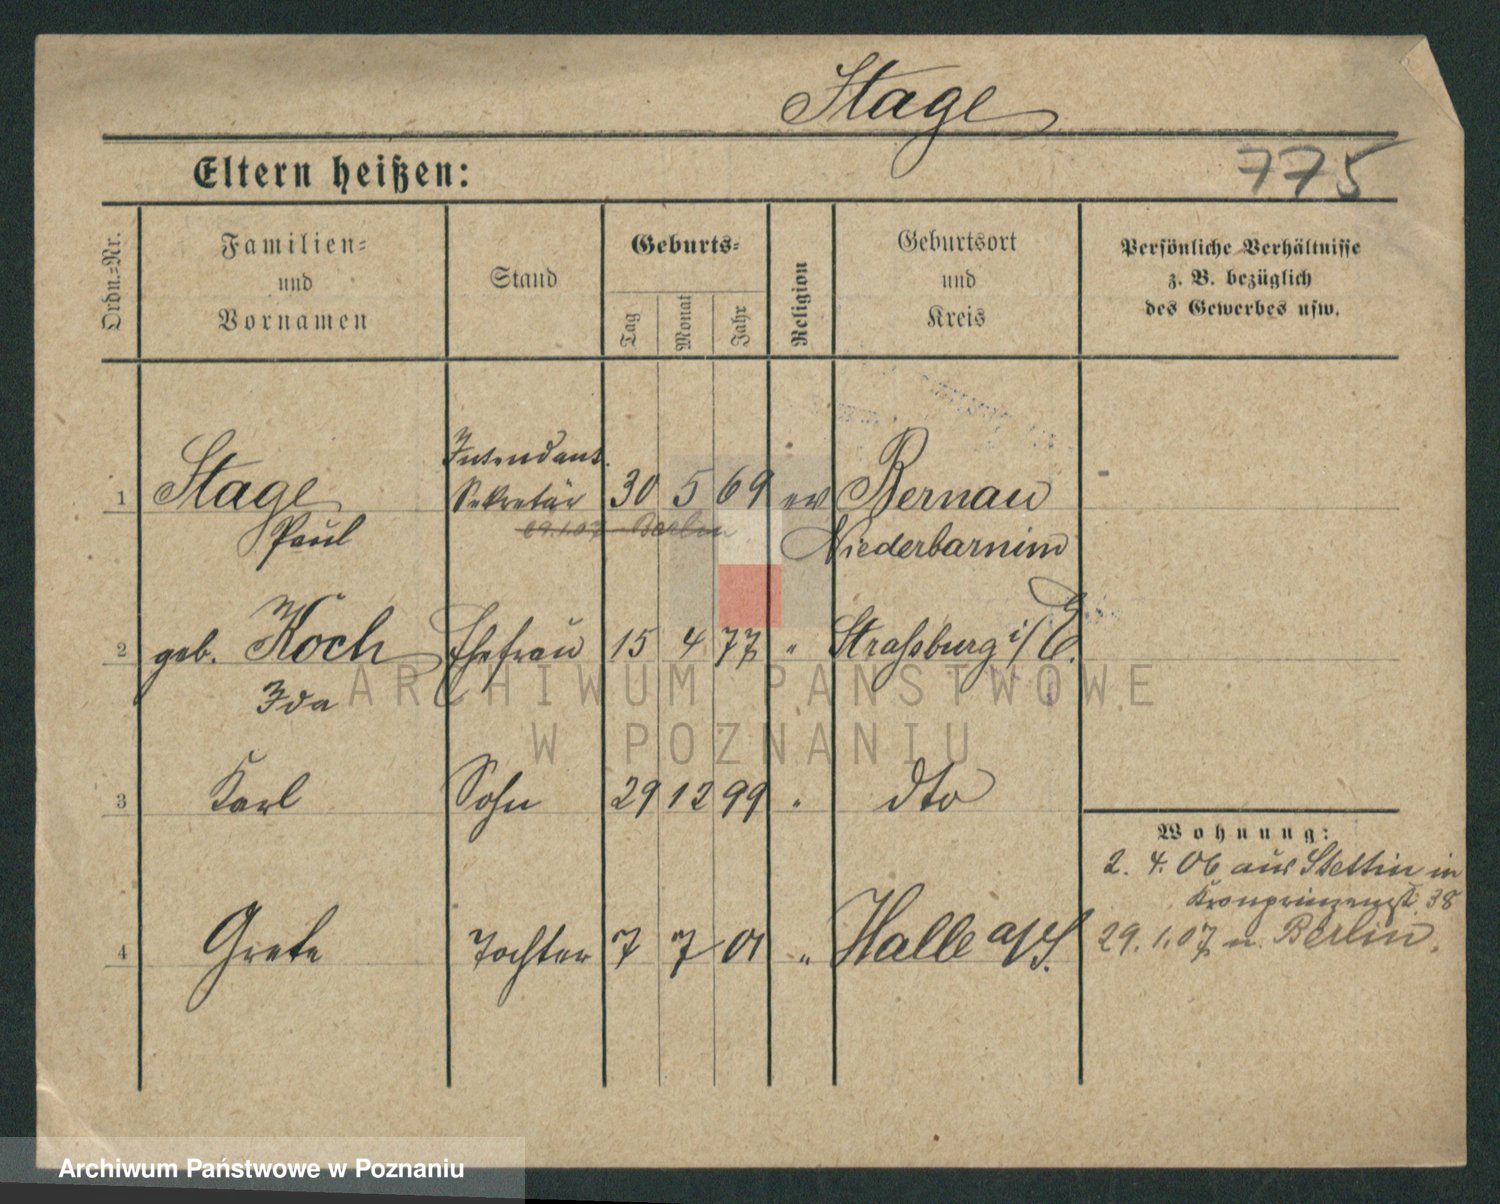 Stage
Eltern heißen:
775
Ordn.=Nr.
Familien=
und
Vornamen
Stand
Geburts=
Tag
Monat
Jahr
Religion
Geburtsort
und
Kreis
Persönliche Verhältnisse
z. B. bezüglich
des Gewerbes usw.
Intendant.
1 Stage Sekretär 30 5 69 ev Bernau
Paul 29.1.07 Berlin Niederbarnim
2 geb. Koch Ehefrau 15 4 77 " Straßburg i/E.
Ida
3 Karl Sohn 29 12 99 " dto
Wohnung:
2. 4. 06 aus Stettin in
Kronprinzenst 38
4 Grete Tochter 7 7 01 " Halle a/S. 29. 1. 07 n. Berlin.
ARCHIWUM PAŃSTWOWE
W POZNANIU
Archiwum Państwowe w Poznaniu